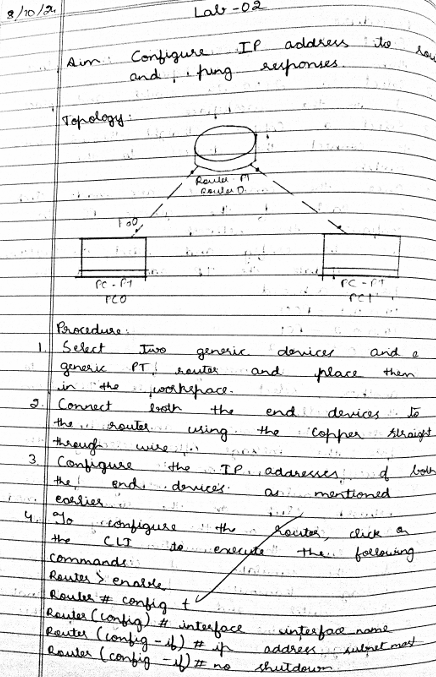 8/10/24
Lab-02
Aim: Configure IP address to rou
and ping responses.
Topology:
Router-PT
Router0
Fa0
PC-PT
PC0
PC-PT
PC1
Procedure:
1. Select two generic devices and a
generic PT router and place them
in the workspace.
2. Connect both the end devices to
the router using the copper straight
through wire.
3. Configure the IP addresses of both
the end devices as mentioned
earlier
4. To configure the router, click on
the CLI to execute the following
commands:
Router > enable
Router # config t
Router (config) # interface interface name
Router (config-if) # ip address subnet mask
Router (config-if) # no shutdown